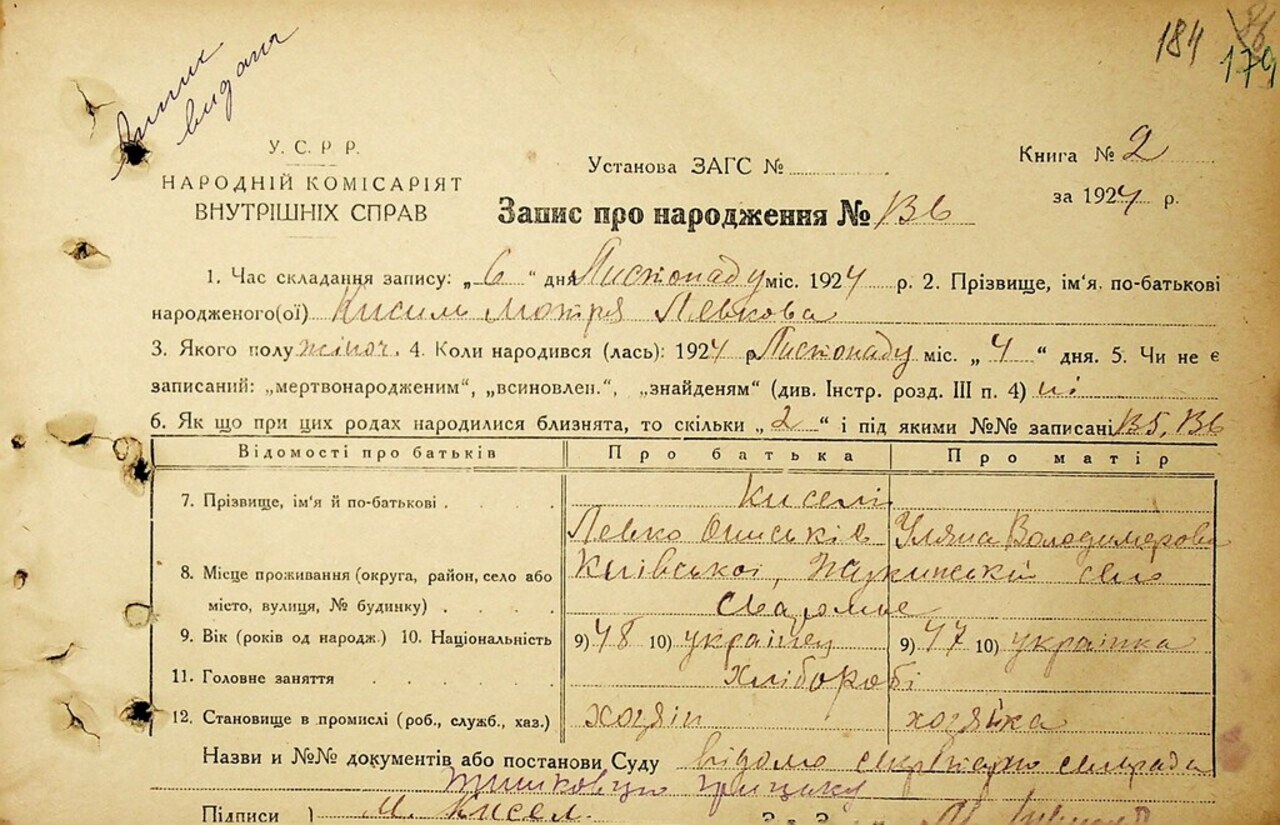 184 179
видана
У. С. Р. Р.
НАРОДНІЙ КОМІСАРІЯТ
ВНУТРІШНІХ СПРАВ
Установа ЗАГС №
Книга № 2
за 1924 р.
Запис про народження № 136
1. Час складання запису: „ 6 “ дня Листопаду міс. 1924 р. 2. Прізвище, ім'я, по-батькові
народженого(ої) Кисиль Мотря Левкова
3. Якого полу жіноч. 4. Коли народився (лась): 1924 р. Листопаду міс. „ 4 “ дня. 5. Чи не є
записаний: „мертвонародженим“, „всиновлен.“, „знайденям“ (див. Інстр. розд. III п. 4) ні
6. Як що при цих родах народилися близнята, то скільки „ 2 “ і під якими №№ записані 135, 136
Відомості про батьків Про батька Про матір
7. Прізвище, ім'я й по-батькові Киселі
Левко Уляна Володимерова
8. Місце проживання (округа, район, село або Київської, село
місто, вулиця, № будинку)
9. Вік (років од народж.) 10. Національність 9) 48 10) українец 9) 47 10) українка
11. Головне заняття Хлібороби
12. Становище в промислі (роб., служб., хаз.) хозяін хозяйка
Назви и №№ документів або постанови Суду відомо
Підписи ) М. Кисел.